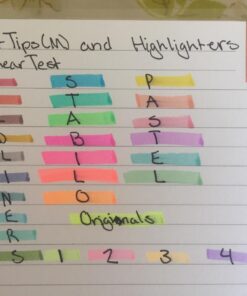 Tips(M) and Highlighters
ear Test
S P
T A
A S
B T
L I E
I L L
N O
E Originals
R
S 1 2 3 4